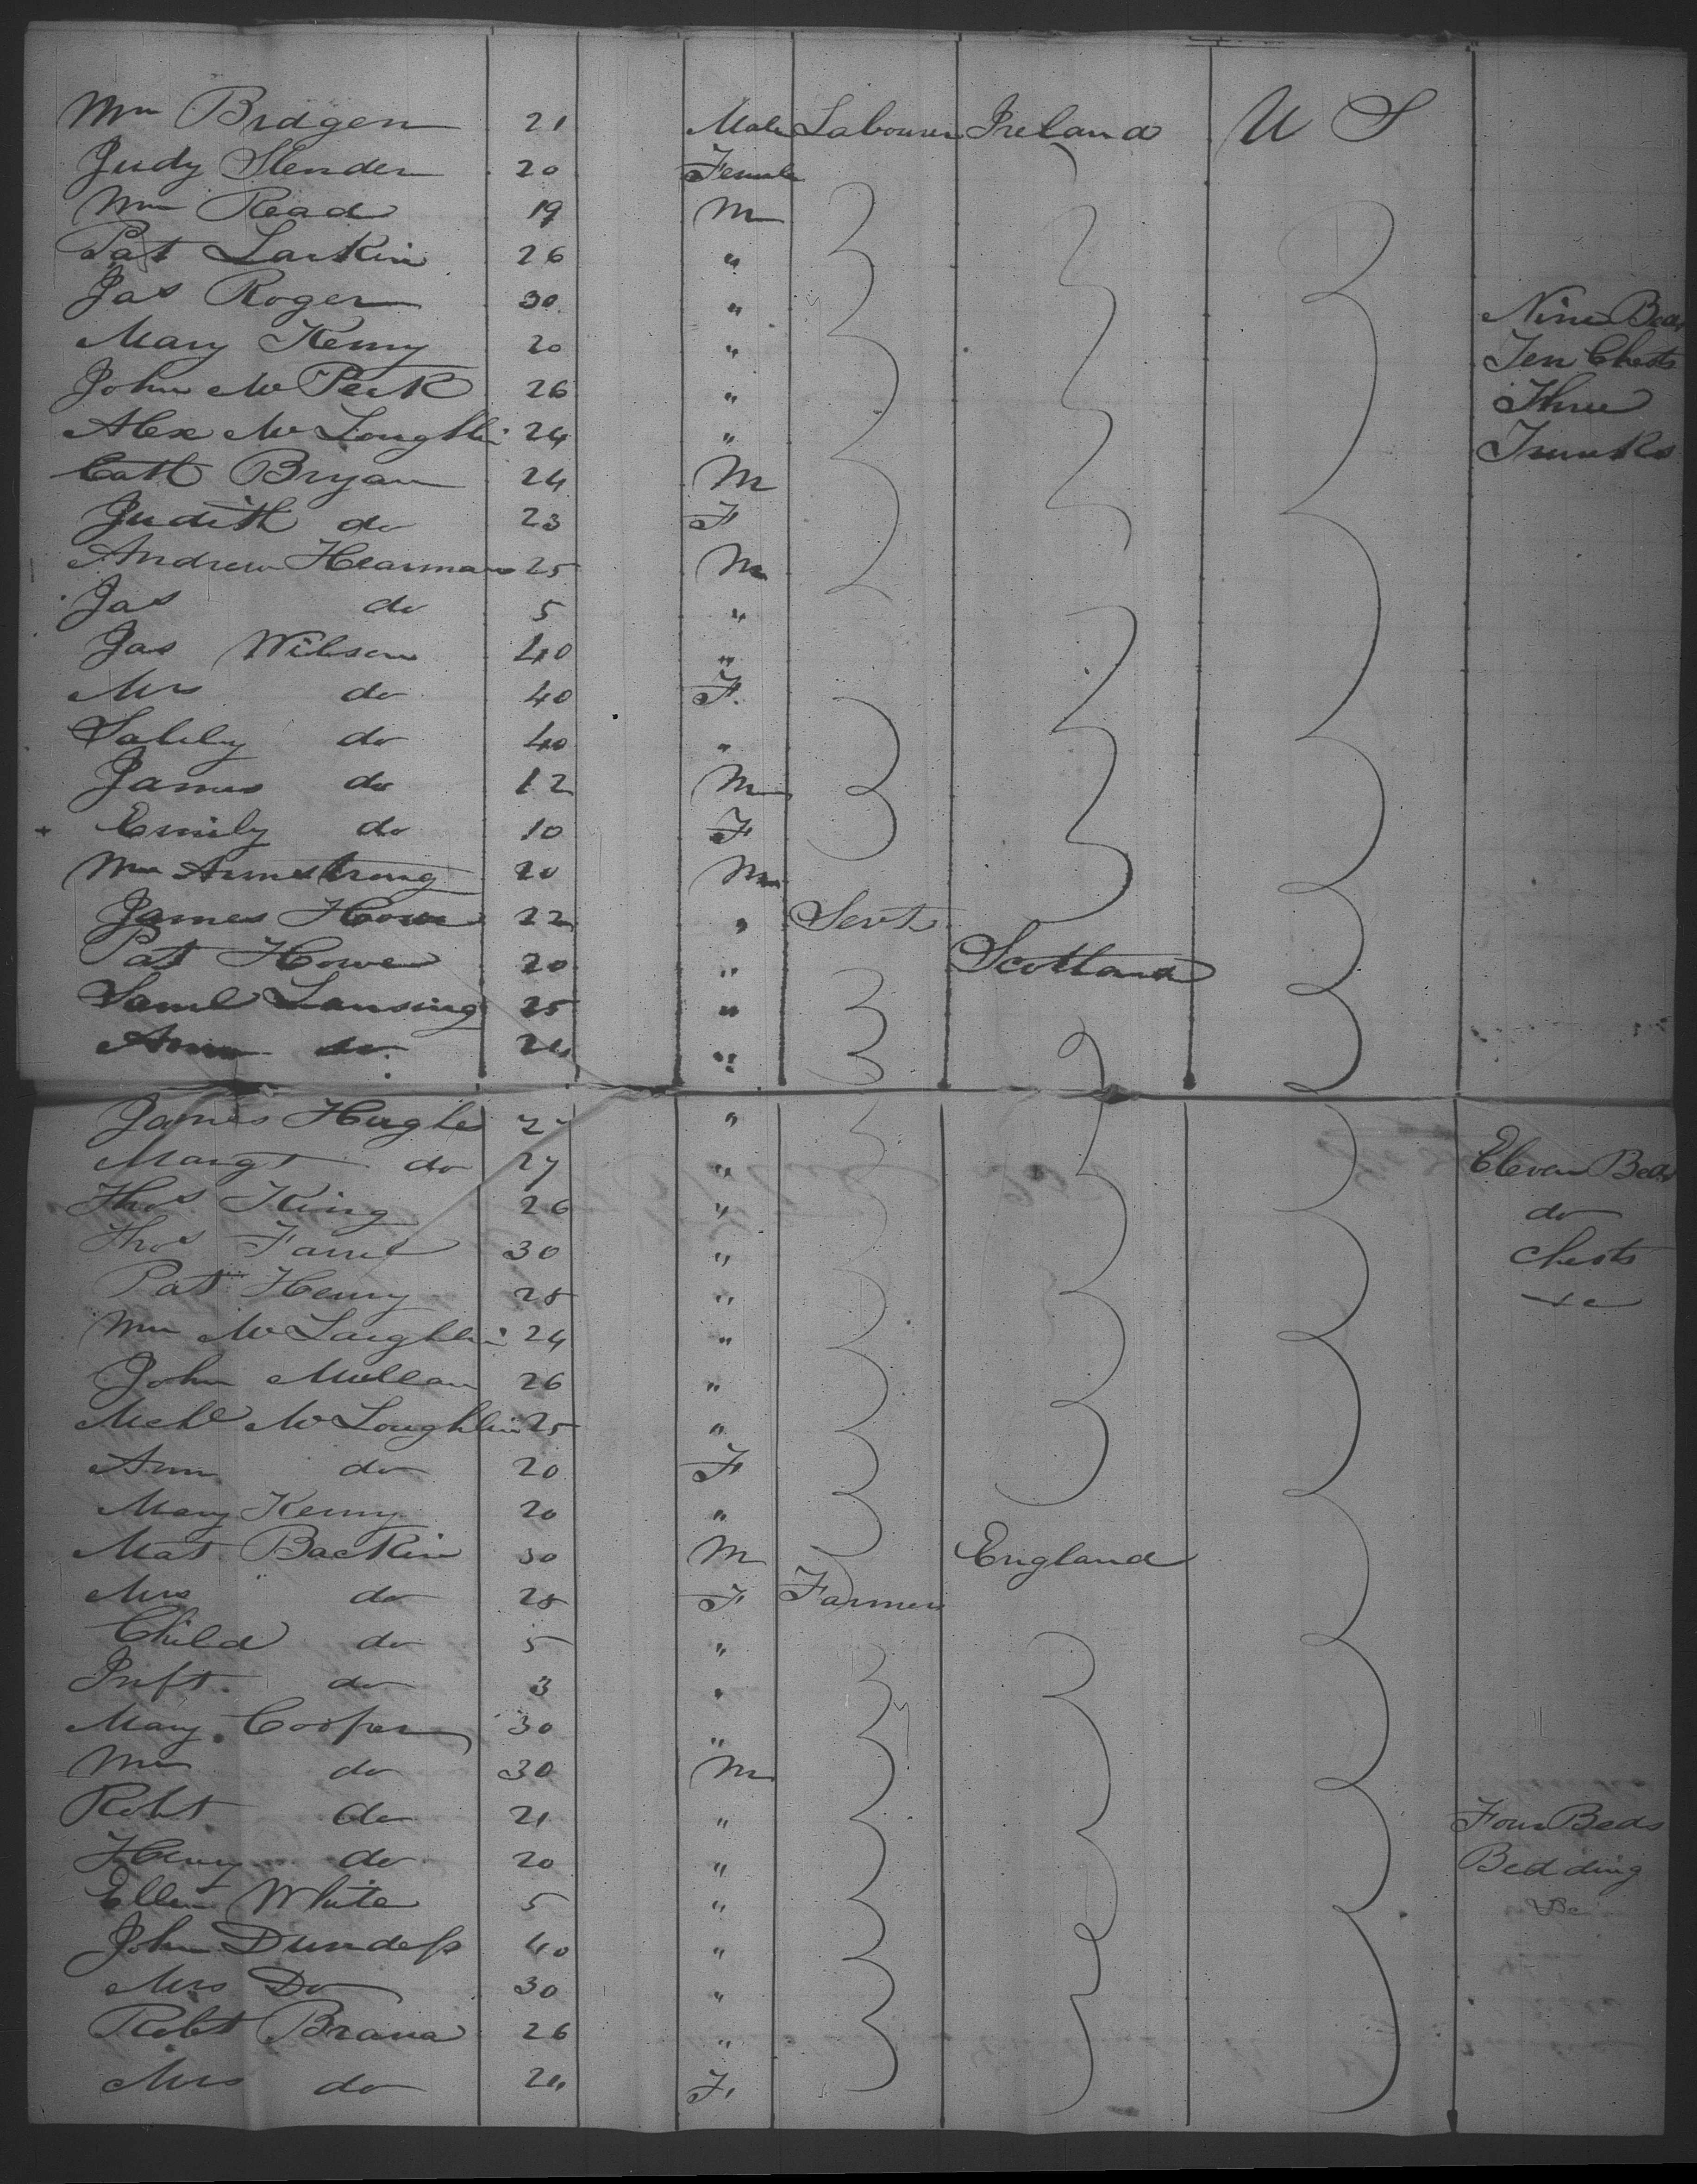 Wm Bridgen 21 Male Labourer Ireland U S
Judy Slender 20 Female
Wm Read 19 M
Pat Larkin 26 "
Jas Roger 30 " Nine Beds
Mary Kenny 20 " Ten Chests
John Mc Peak 26 " Three
Alex Mc Loughlin 24 " Trunks
Cath Bryan 24 M
Judith do 23 F
Andrew Hearman 25 M
Jas do 5 "
Jas Wilson 40 "
Mrs do 40 F.
Sally do 40 "
James do 12 M
Emily do 10 F
Wm Armstrong 20 M
James Howe 22 " Servts
Pat Howe 20 " Scotland
Saml Lansing 25 "
Ann do 24 "
James Hughs "
Margt do 27 " Eleven Beds
Thos King 26 " do
Thos 30 " Chests
Pat Henry 28 " &c
Wm Mc Laughlin 24 "
John Mullan 26 "
Mchl Mc Loughlin 25 "
Ann do 20 F
Mary Kenny 20 "
Mat Backin 30 M England
Mrs do 28 F Farmers
Child do 5 "
Inft. do 3 "
Mary Cooper 30 "
Wm do 30 M
Robt do 21 " Four Beds
Henry do 20 " Bedding
Ellen White 5 " &c
John Dundess 40 "
Mrs Do 30 "
Robt Brana 26 "
Mrs do 24 F.